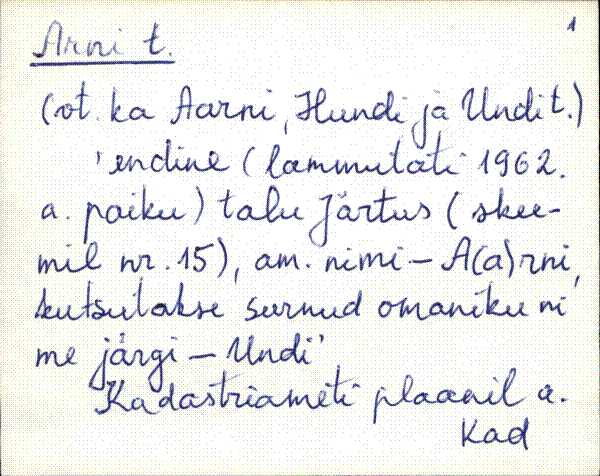 1
Arni t.
(vt. ka Aarni, Hundi ja Undi t.)
'endine (lammutati 1962.
a. paiku) talu Järtus (skee-
mil nr. 15), am. nimi - A(a)rni,
kutsutakse surnud omaniku ni
me järgi - Undi'
Kadastriameti plaanil a.
Kad